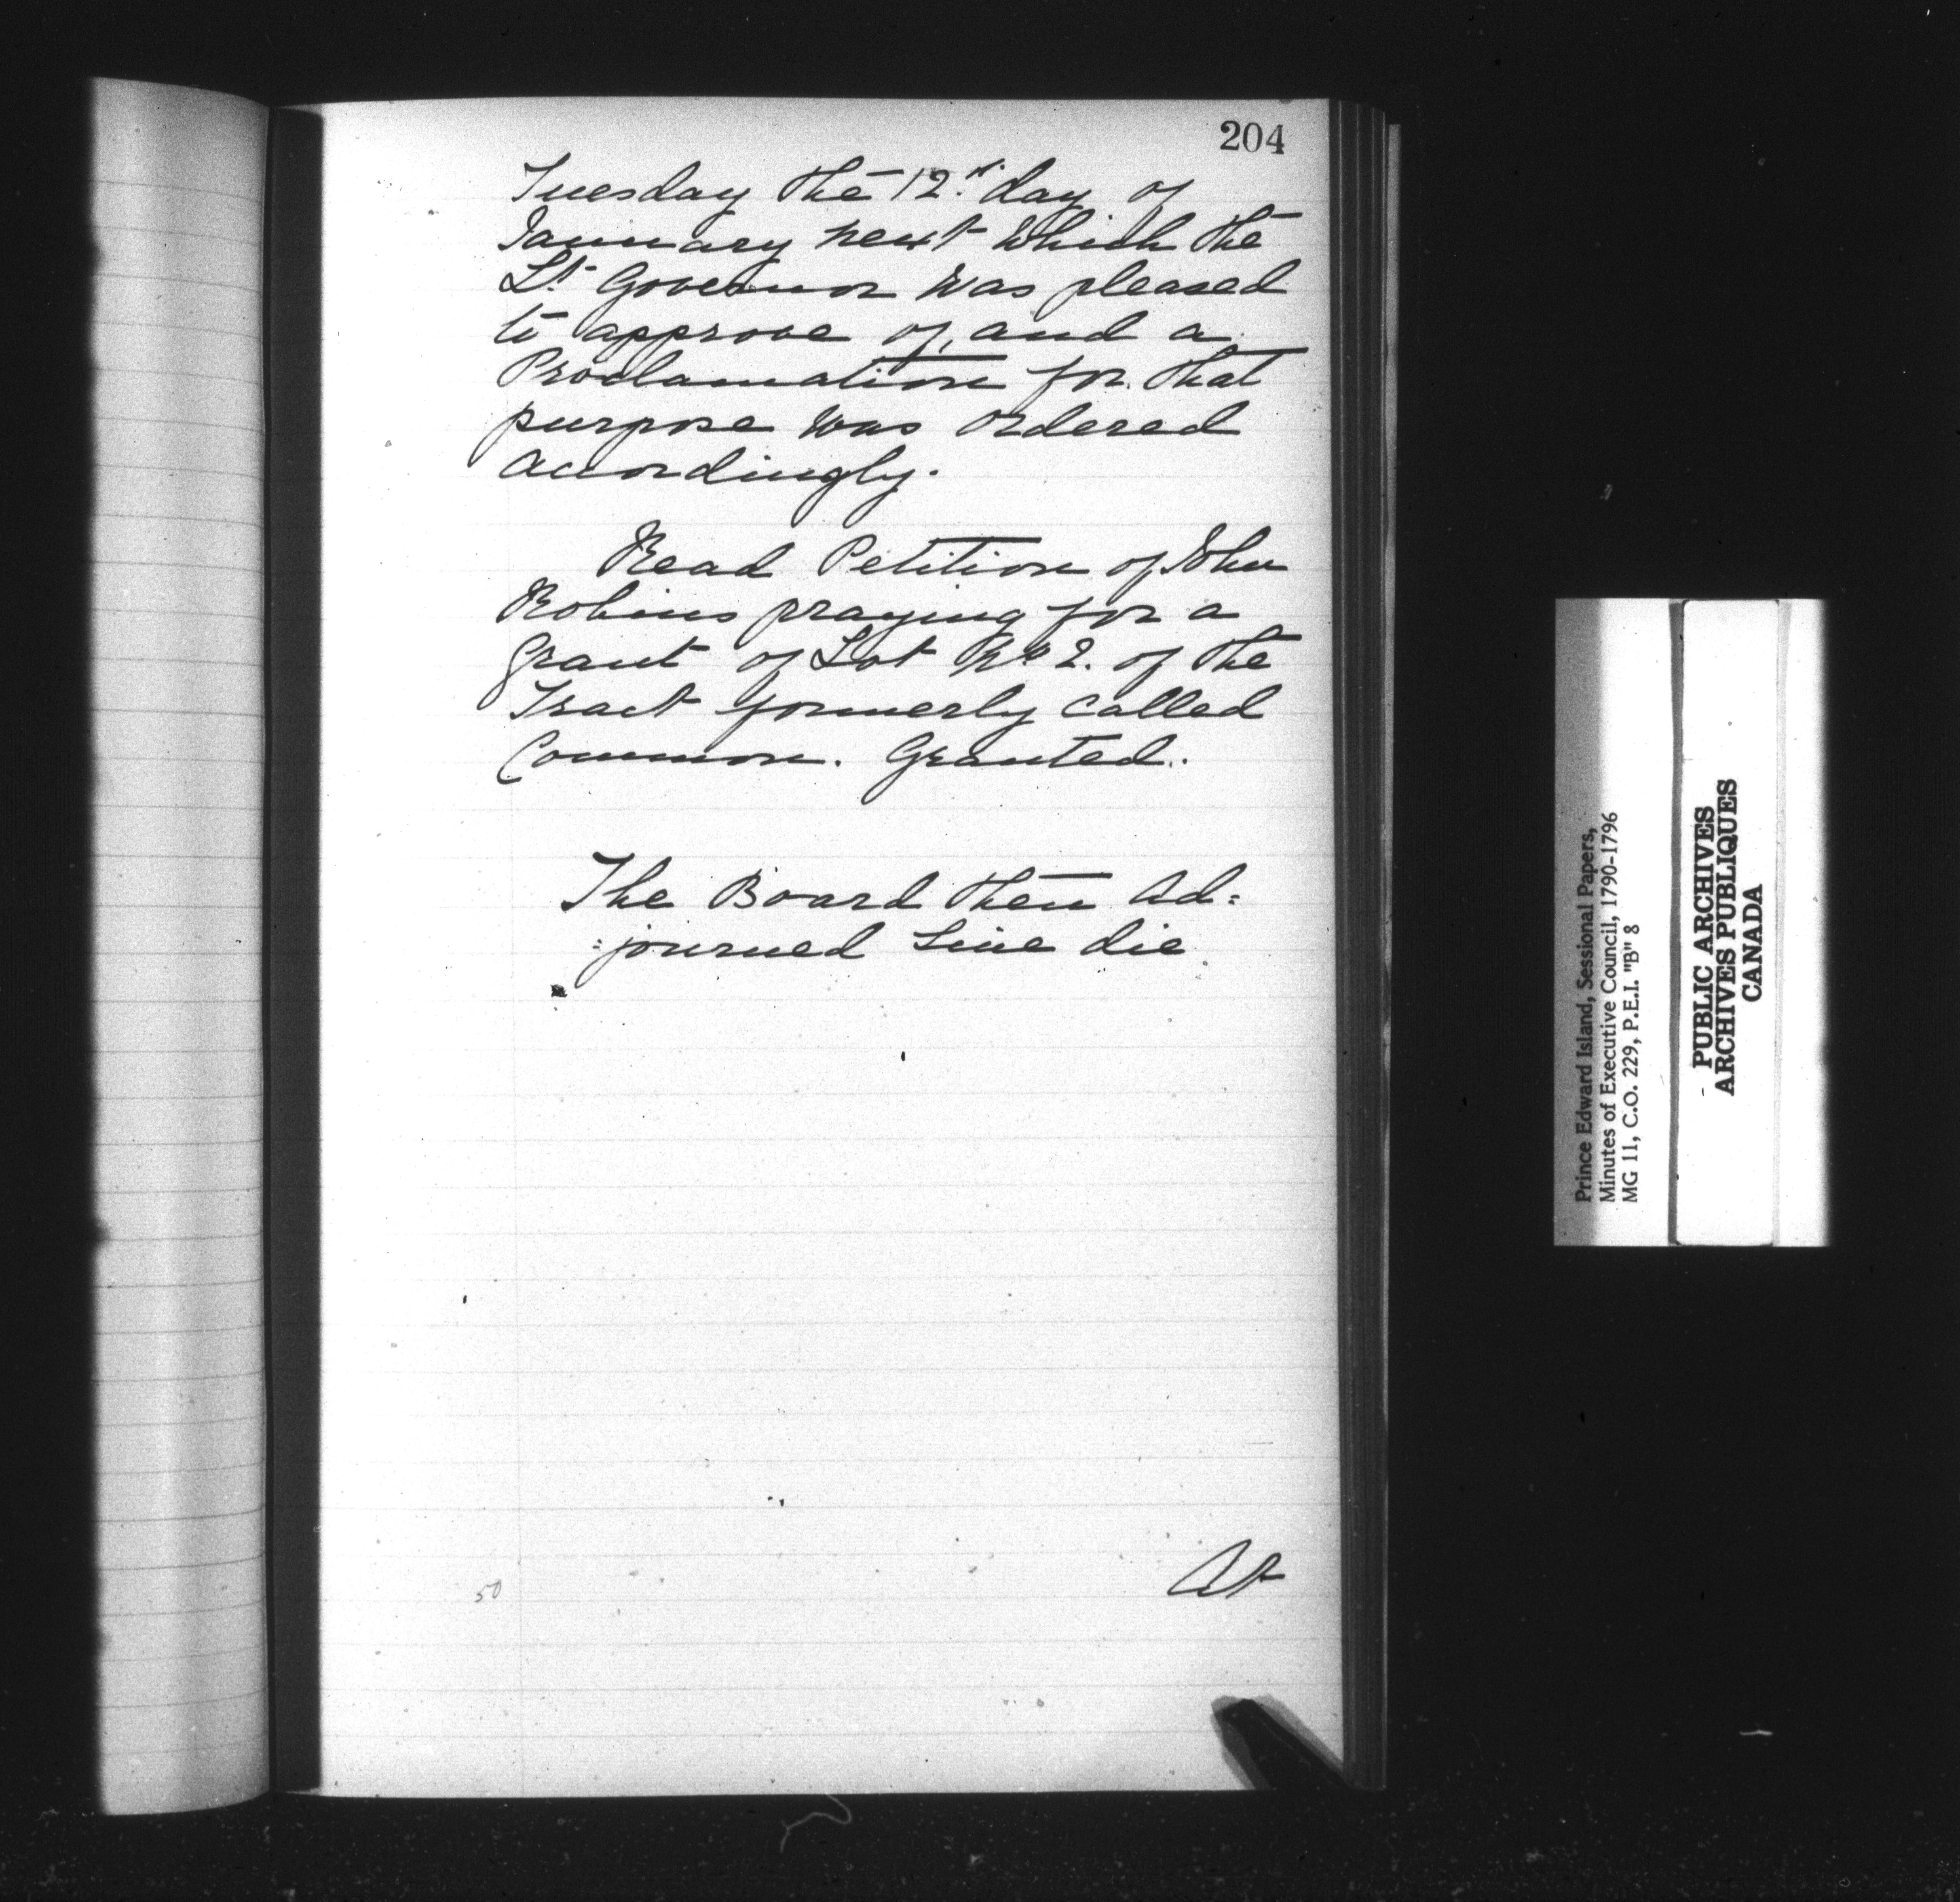 204
Tuesday the 12th day of
January next which the
Lt Governor was pleased
to approve of, and a
Proclamation for that
purpose was ordered
accordingly.
Read Petition of John
Robins praying for a
grant of Lot No 2. of the
Tract formerly called
Common. Granted.
The Board then Ad=
=journed Sine die
At
50
Prince Edward Island, Sessional Papers,
Minutes of Executive Council, 1790-1796
MG 11, C.O. 229, P.E.I. "B" 8
PUBLIC ARCHIVES
ARCHIVES PUBLIQUES
CANADA